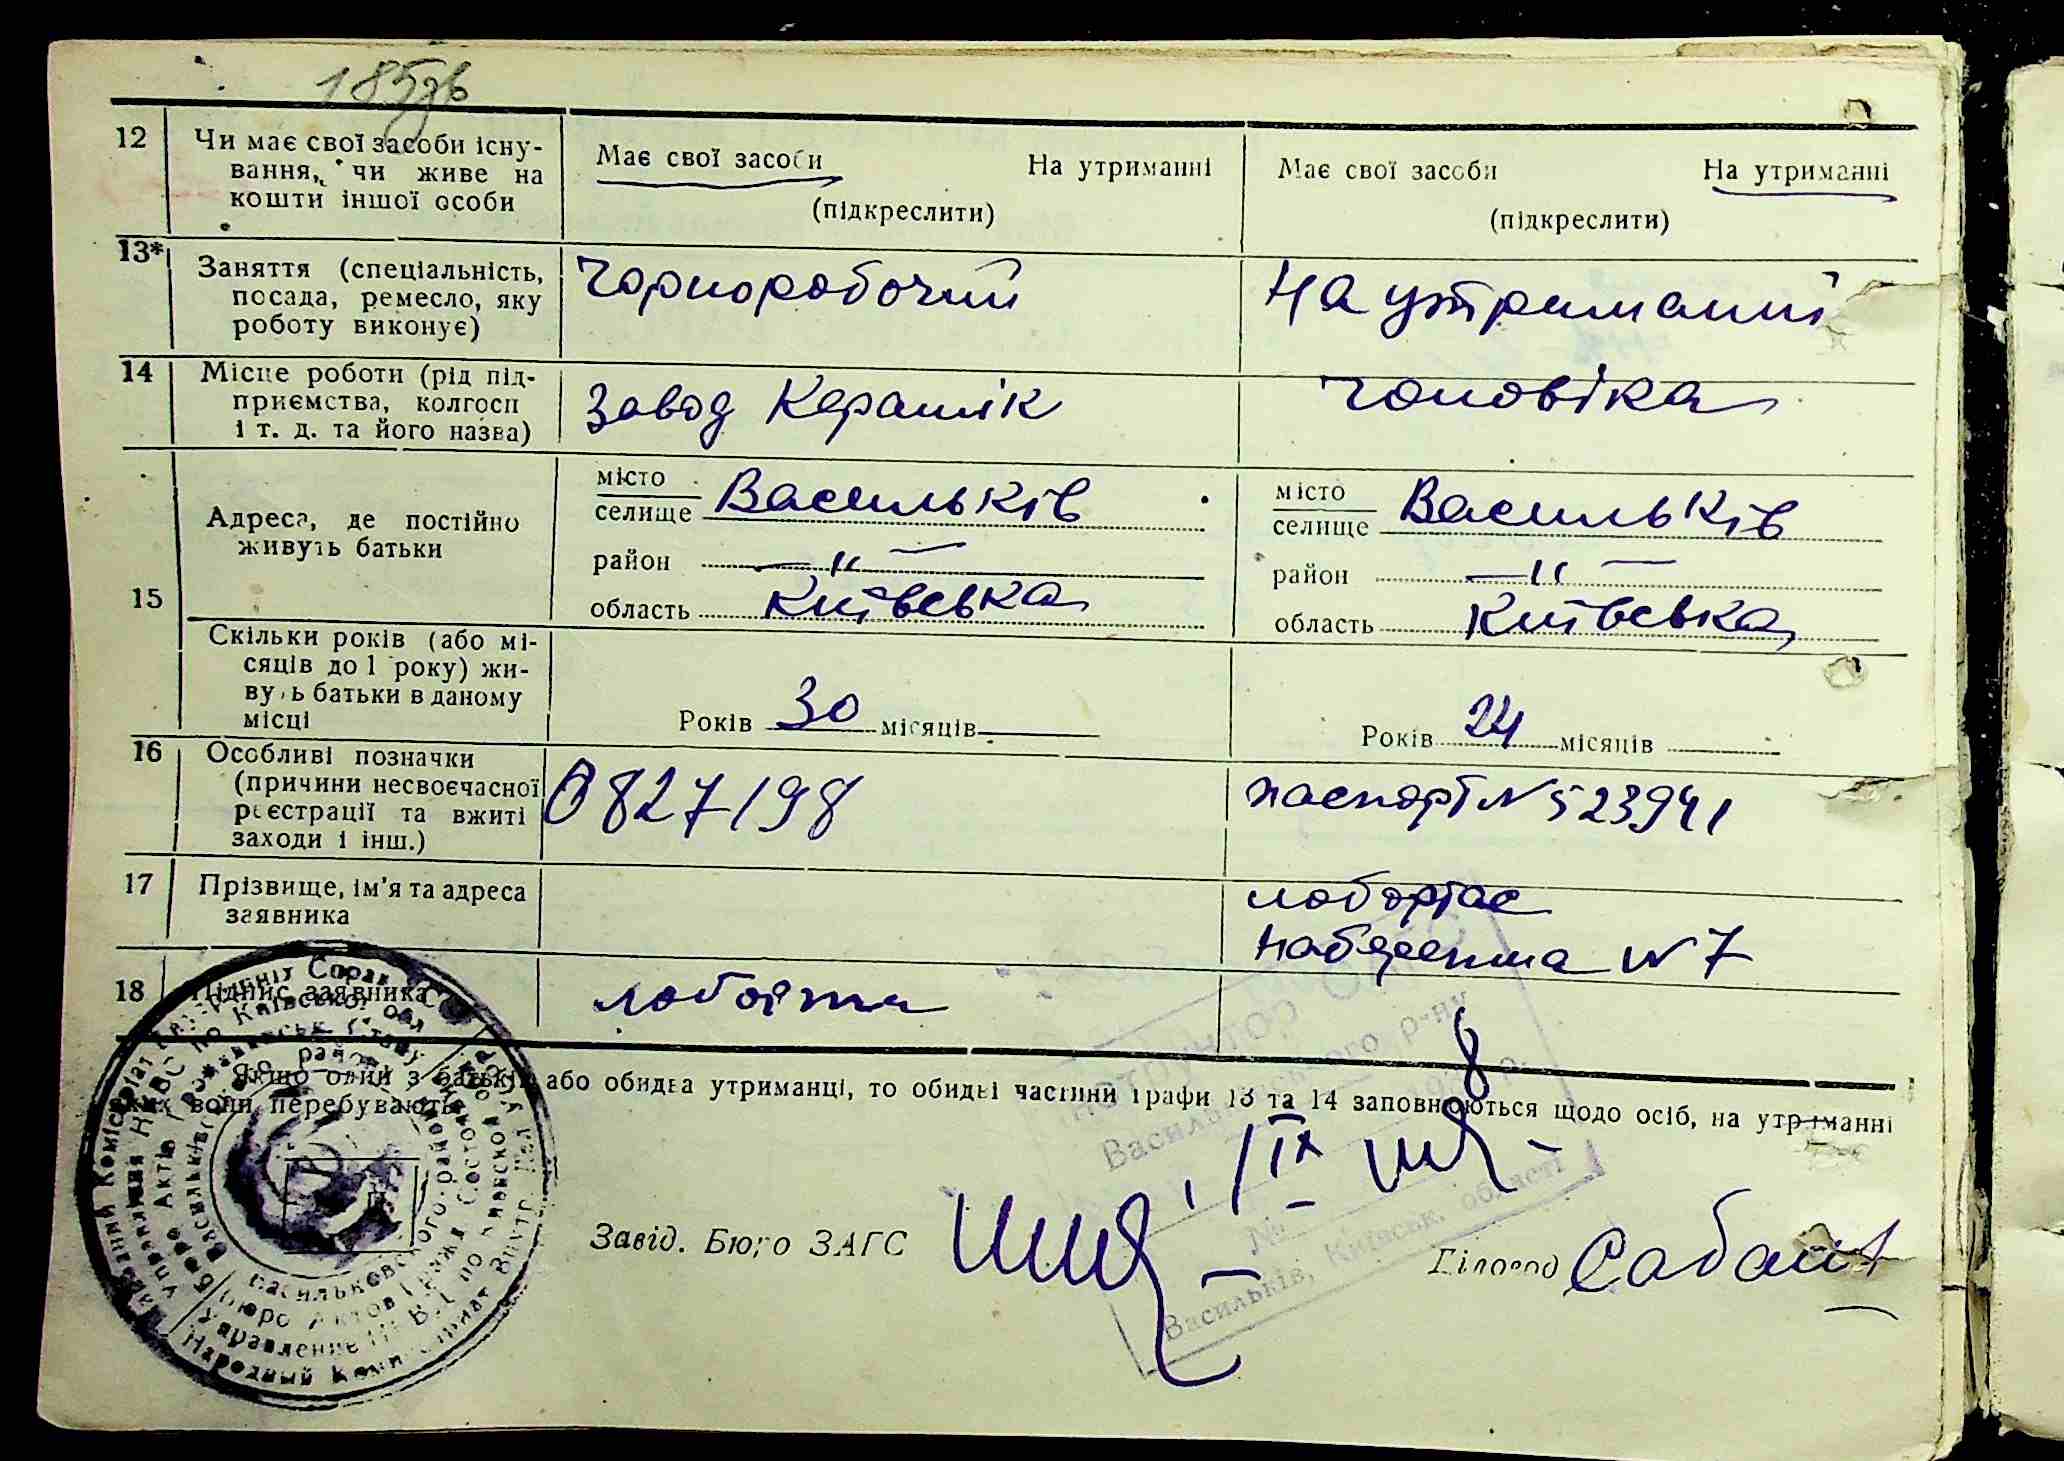 185зв
12 Чи має свої засоби існу-
вання, чи живе на
кошти іншої особи
Має свої засоби На утриманні
(підкреслити)
Має свої засоби На утриманні
(підкреслити)
13* Заняття (спеціальність,
посада, ремесло, яку
роботу виконує)
Чорноробочий
На утриманні
14 Місце роботи (рід під-
приємства, колгосп
і т. д. та його назва)
Завод Керамік
Чоловіка
15
Адреса, де постійно
живуть батьки
місто
селище Васильків
район —〃—
область Київська
місто
селище Васильків
район —〃—
область Київська
Скільки років (або мі-
сяців до 1 року) жи-
вуть батьки в даному
місці
Років 30 місяців
Років 24 місяців
16 Особливі позначки
(причини несвоєчасної
реєстрації та вжиті
заходи і інш.)
0827198
паспорт № 523941
17 Прізвище, ім'я та адреса
заявника
Набережна № 7
18 Підпис заявника
Якщо один з батьків або обидва утриманці, то обидві частини графи 13 та 14 заповнюються щодо осіб, на утриманні
яких вони перебувають
Завід. Бюро ЗАГС
Діловод
Васильківського р-ну
№
Васильків, Київськ. області